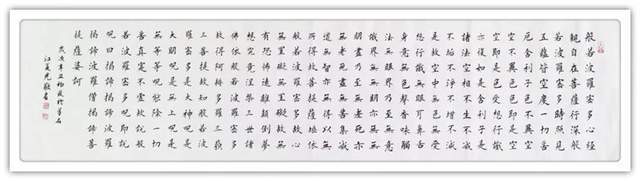 般若波羅蜜多心經
觀自在菩薩行深般
若波羅蜜多時照見
五蘊皆空度一切苦
厄舍利子色不異空
空不異色色即是空
空即是色受想行識
亦復如是舍利子是
諸法空相不生不滅
不垢不淨不增不減
是故空中無色無受
想行識無眼耳鼻舌
身意無色聲香味觸
法無眼界乃至無意
識界無無明亦無無
明盡乃至無老死亦
無老死盡無苦集滅
道無智亦無得以無
所得故菩提薩埵依
般若波羅蜜多故心
無罣礙無罣礙故無
有恐怖遠離顛倒夢
想究竟涅槃三世諸
佛依般若波羅蜜多
故得阿耨多羅三藐
三菩提故知般若波
羅蜜多是大神咒是
大明咒是無上咒是
無等等咒能除一切
苦真實不虛故說般
若波羅蜜多咒即說
咒曰揭諦揭諦波羅
揭諦波羅僧揭諦菩
提薩婆訶
戊戌年
江夏光書